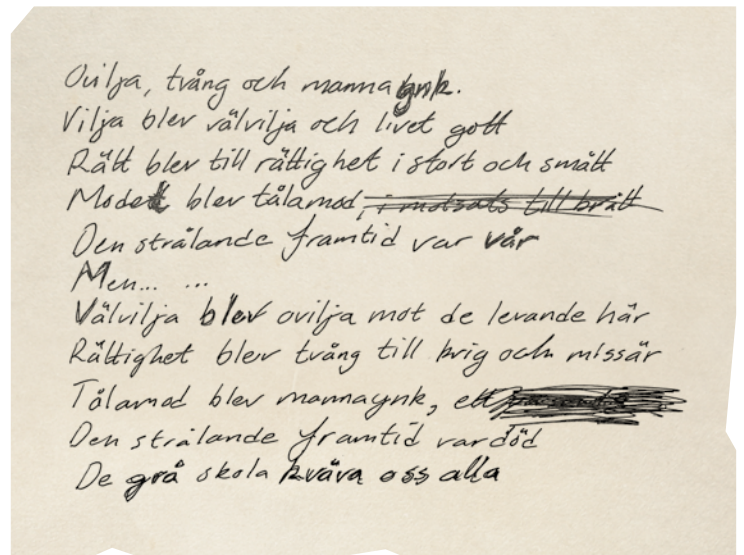 Ovilja, tvång och mannagynk.
Vilja blev välvilja och livet gott
Rätt blev till rättighet i stort och smått
Modet blev tålamod, i motsats till brått
Den strålande framtid var vår
Men... ...
Välvilja blev ovilja mot de levande här
Rättighet blev tvång till krig och missär
Tålamod blev mannagynk, ett
Den strålande framtid var död
De grå skola kväva oss alla